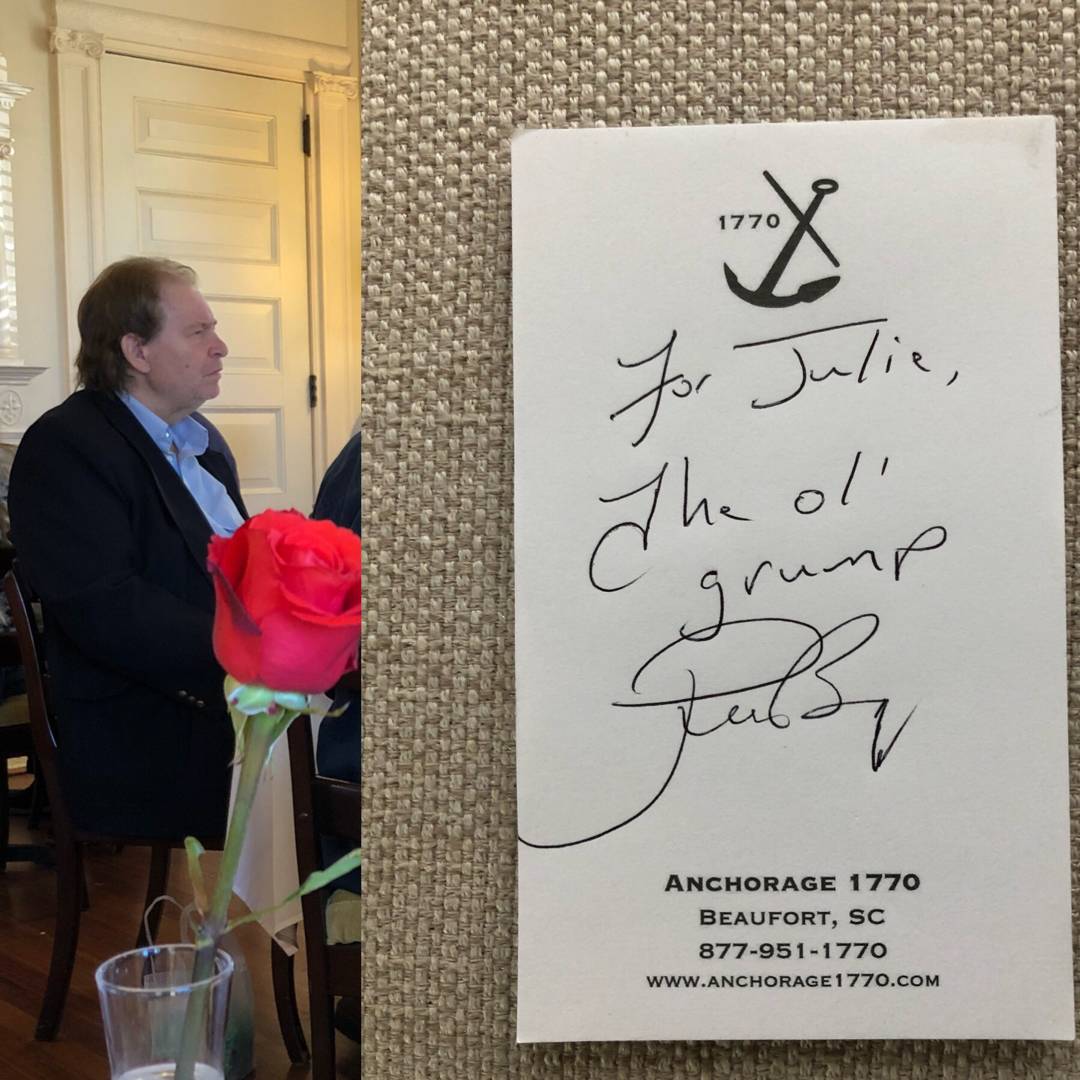 1770
For Julie,
The ol'
grump
ANCHORAGE 1770
BEAUFORT, SC
877-951-1770
WWW.ANCHORAGE1770.COM